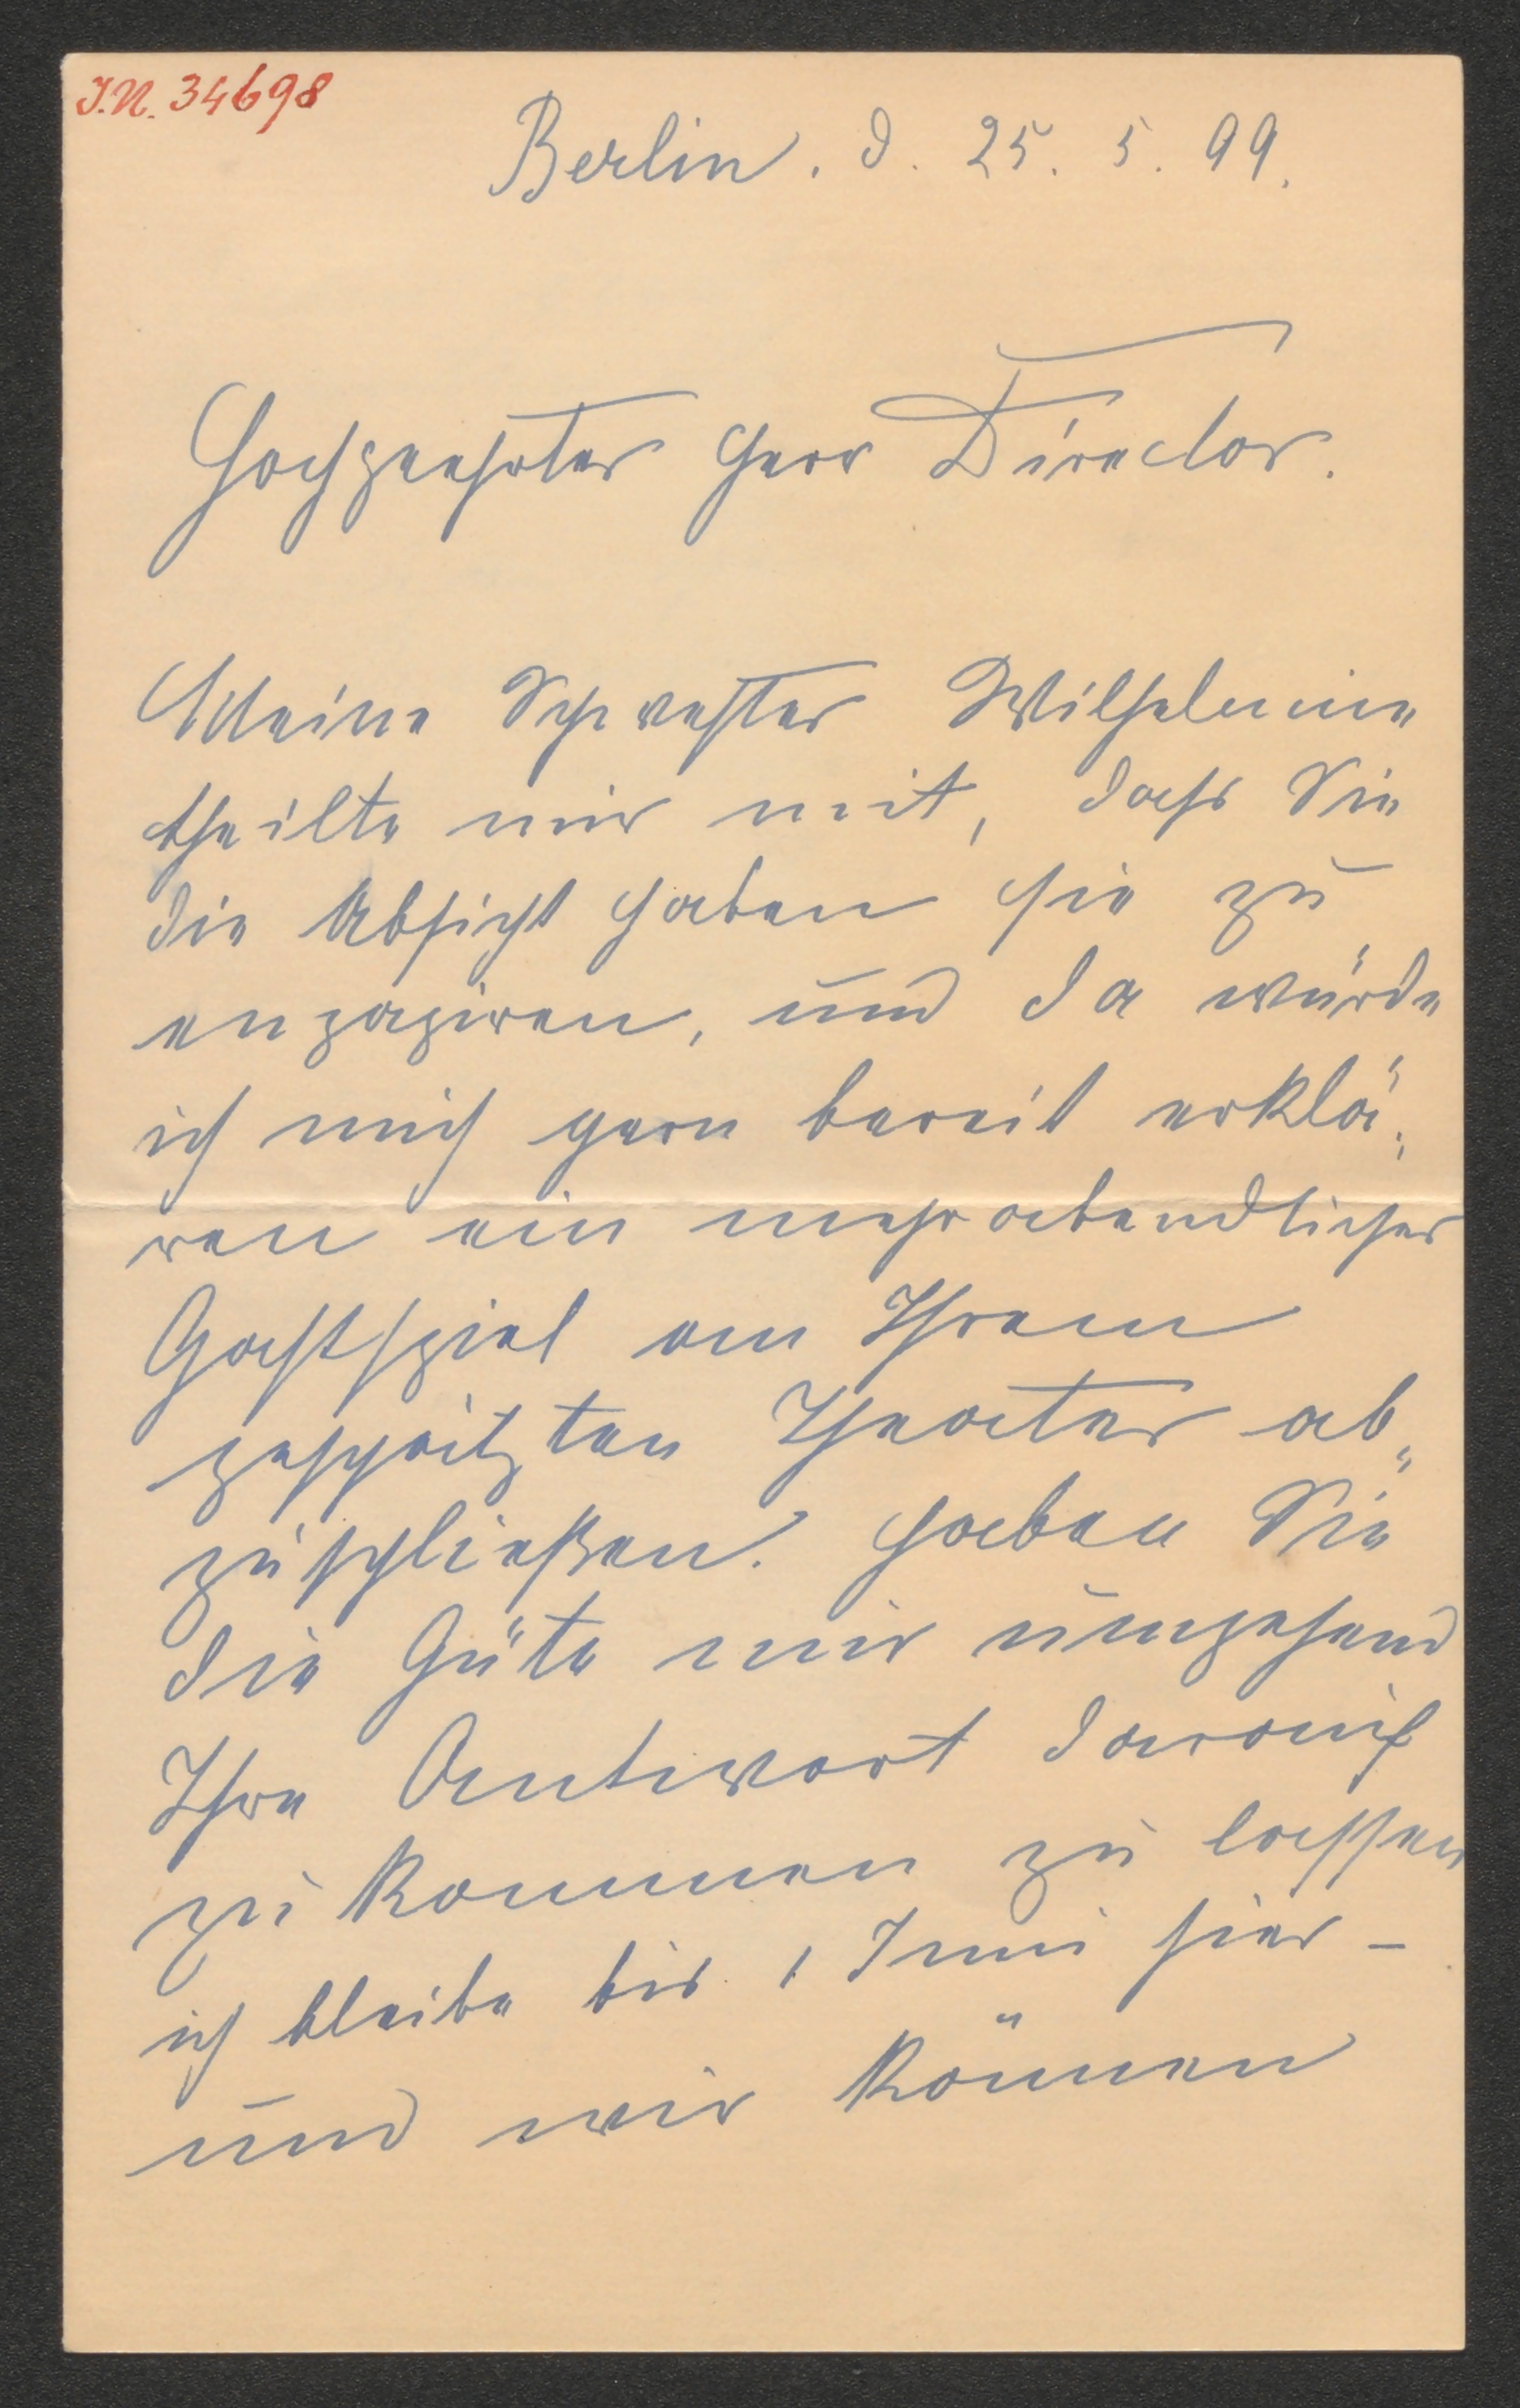 J.N. 34698
Berlin. d. 25. 5. 99.
Hochgeehrter Herr Director.
Meine Schwester Wilhelmine
theilte mir mit, dass Sie
die Absicht haben sie zu
engagiren, und da würde
ich mich gern bereit erklä„
ren ein mehrabendliches
Gastspiel an Ihrem
geschätzten Theater ab„
zuschließen. Haben Sie
die Güte mir umgehend
Ihre Antwort darauf
zu kommen zu lassen
ich bleibe bis 1 Juni hier –
und wir können